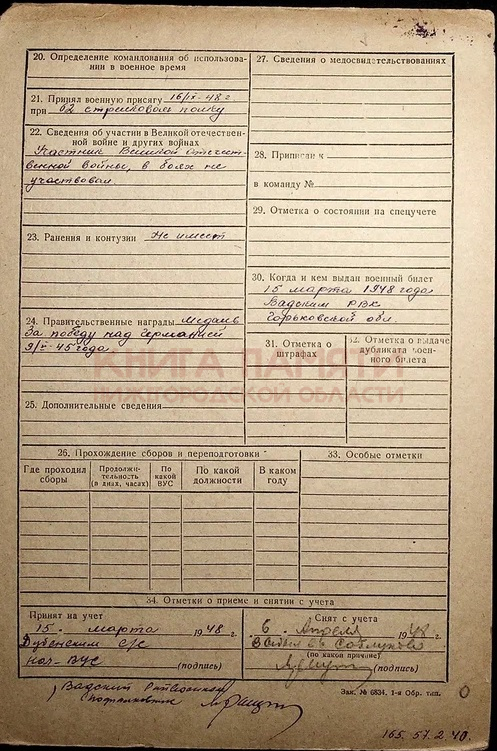 20. Определение командования об использова-
нии в военное время
21. Принял военную присягу 16/IX-48 г
при 62 стрелковом полку
22. Сведения об участии в Великой отечествен-
ной войне и других войнах
Участник Великой отечест-
венной войны, в боях не
участвовал
23. Ранения и контузии Не имеет
24. Правительственные награды Медаль
За победу над Германией
9/V-45 года
25. Дополнительные сведения
27. Сведения о медосвидетельствованиях
28. Приписан к
в команду №
29. Отметка о состоянии на спецучете
30. Когда и кем выдан военный билет
15 марта 1948 года
Вадским РВК
Горьковской обл.
31. Отметка о
штрафах
32. Отметка о выдаче
дубликата воен-
ного билета
КНИГА ПАМЯТИ
НИЖГОРОДСКОЙ ОБЛАСТИ
26. Прохождение сборов и переподготовки
Где проходил
сборы
Продолжи-
тельность
(в днях, часах)
По
какой
ВУС
По какой
должности
В каком
году
33. Особые отметки
34. Отметки о приеме и снятии с учета
Принят на учет
15. марта 1948 г.
Дубенским с/с
нач. ВУС
(подпись)
Снят с учета
6. Апреля 1948 г.
(по какой причине)
(подпись)
Вадский
Зак. № 6834. 1-я Обр. тип.
0
165. 57. 2 40.